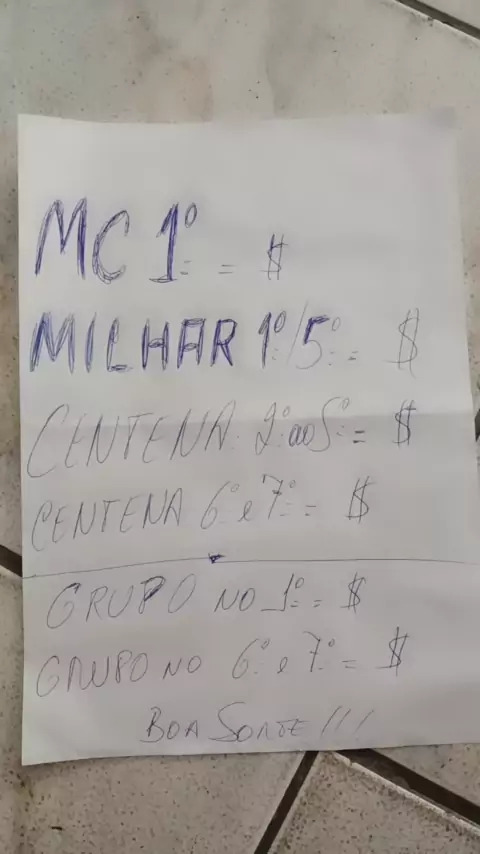 MC 1º = $
MILHAR 1º/5º = $
CENTENA 2º ao 5º = $
CENTENA 6º e 7º = $
GRUPO NO 1º = $
GRUPO NO 6º e 7º = $
BOA SORTE!!!